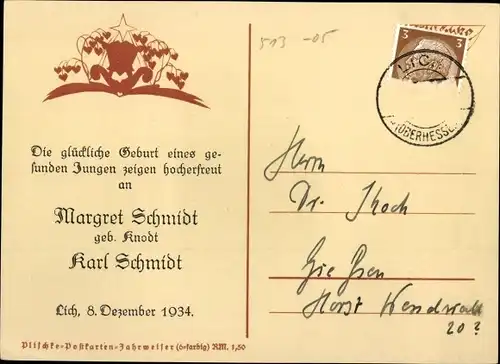 513 -05
3 3
(OBERHESSEN
Die glückliche Geburt eines ge-
sunden Jungen zeigen hocherfreut
an
Margret Schmidt
geb. Knodt
Karl Schmidt
Lich, 8. Dezember 1934.
Plischke-Postkarten-Jahrweiser (6-farbig) RM. 1,50
Herrn
Dr. Koch
Giessen
Horst Wessel
20?